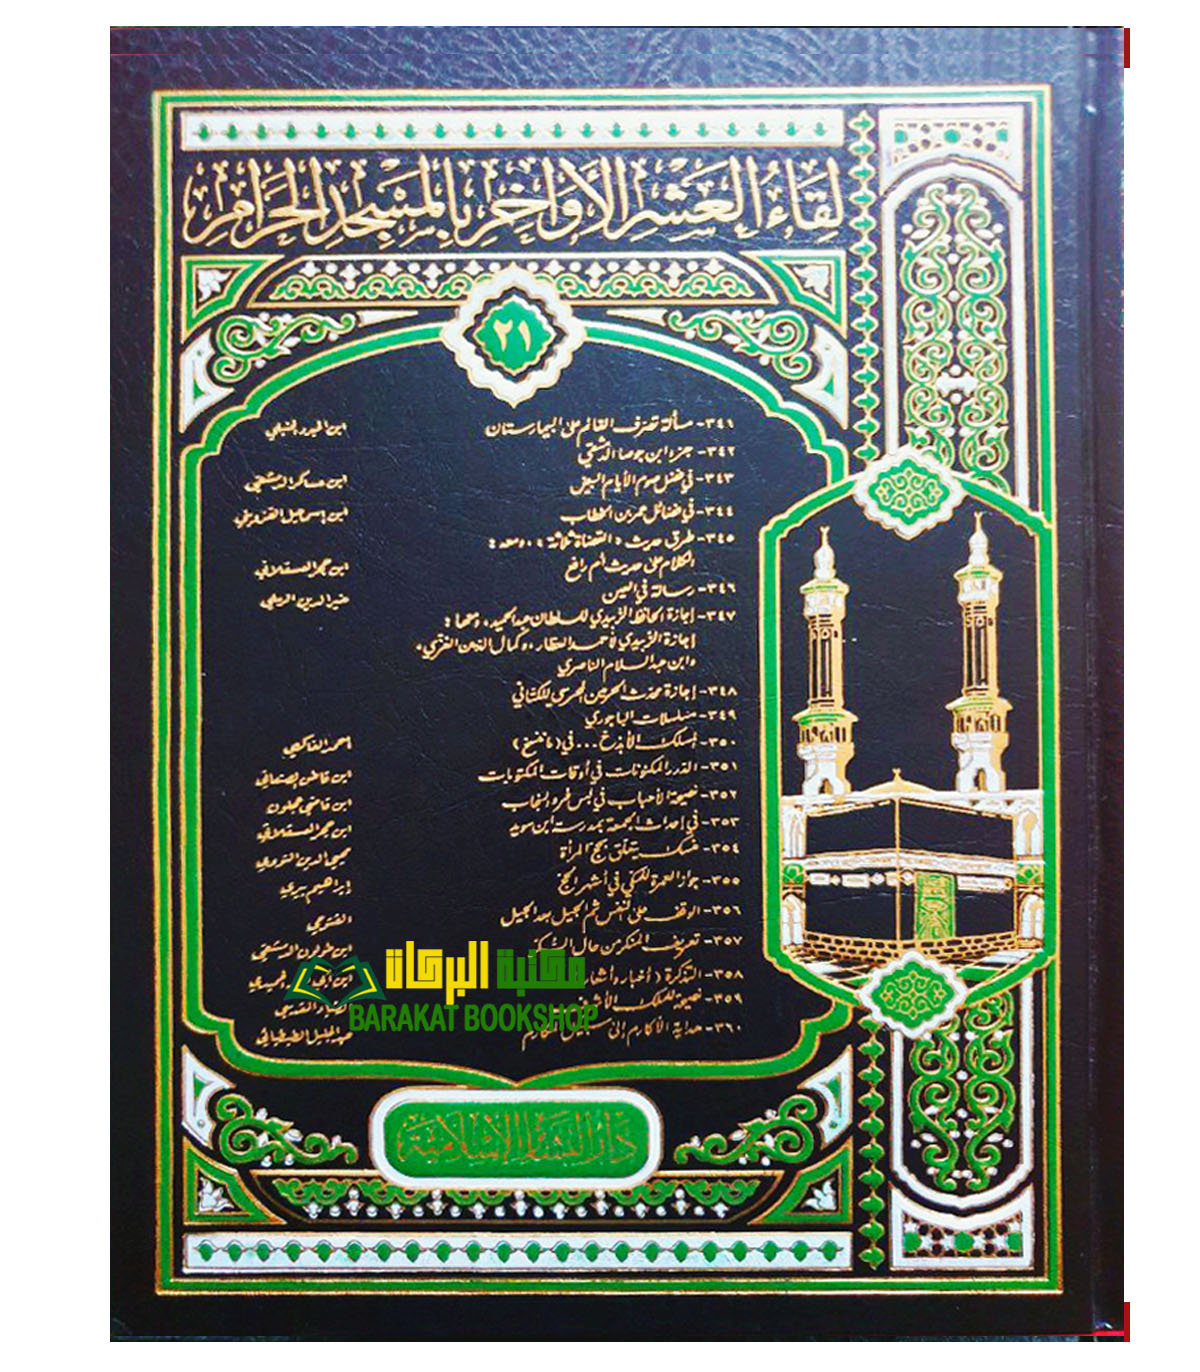 لقاء العشر الأواخر بالمسجد الحرام
٢١
٣٤١- مسألة تصرف القائم على البيمارستان ابن المبرد الحنبلي
٣٤٢- جزء ابن جوصا الدمشقي
٣٤٣- في فضل صوم الأيام البيض ابن عساكر الدمشقي
٣٤٤- في فضائل عمر بن الخطاب ابن إسماعيل القزويني
٣٤٥- طرق حديث «القضاة ثلاثة»، ومعه:
الكلام على حديث أم رافع ابن حجر العسقلاني
٣٤٦- رسالة في العين خير الدين الرملي
٣٤٧- إجازة الحافظ الزبيدي للسلطان عبد الحميد، ومعها:
إجازة الزبيدي لأحمد العطار، وكمال الدين الغزي،
وابن عبد السلام الناصري
٣٤٨- إجازة محدث الحرمين المحرسي للكتاني
٣٤٩- مسلسلات الباجوري
٣٥٠- المسلك الأبذخ ... في (ما نسخ) أحمد الفاكهي
٣٥١- الدرر المكنونات في أوقات المكتوبات ابن قاضي
٣٥٢- نصيحة الأحباب في لبس فرو السنجاب ابن قاضي عجلون
٣٥٣- في إحداث الجمعة بمدرسة ابن سويد ابن حجر العسقلاني
٣٥٤- منسك يتعلق بحج المرأة محيي الدين النووي
٣٥٥- جواز العمرة للمكي في أشهر الحج إبراهيم بيري
٣٥٦- الوقف على النفس ثم الجيل بعد الجيل الفتوحي
٣٥٧- تعريف المنكر من حال السكر ابن طولون الدمشقي
٣٥٨- التذكرة (أخبار وأشعار
٣٥٩- نصيحة للملك الأشرف الضياء المقدسي
٣٦٠- هداية الأكارم إلى سبيل المكارم عبد الجليل الطيطبائي
مكتبة البركاة
BARAKAT BOOKSHOP
دار البشائر الإسلامية